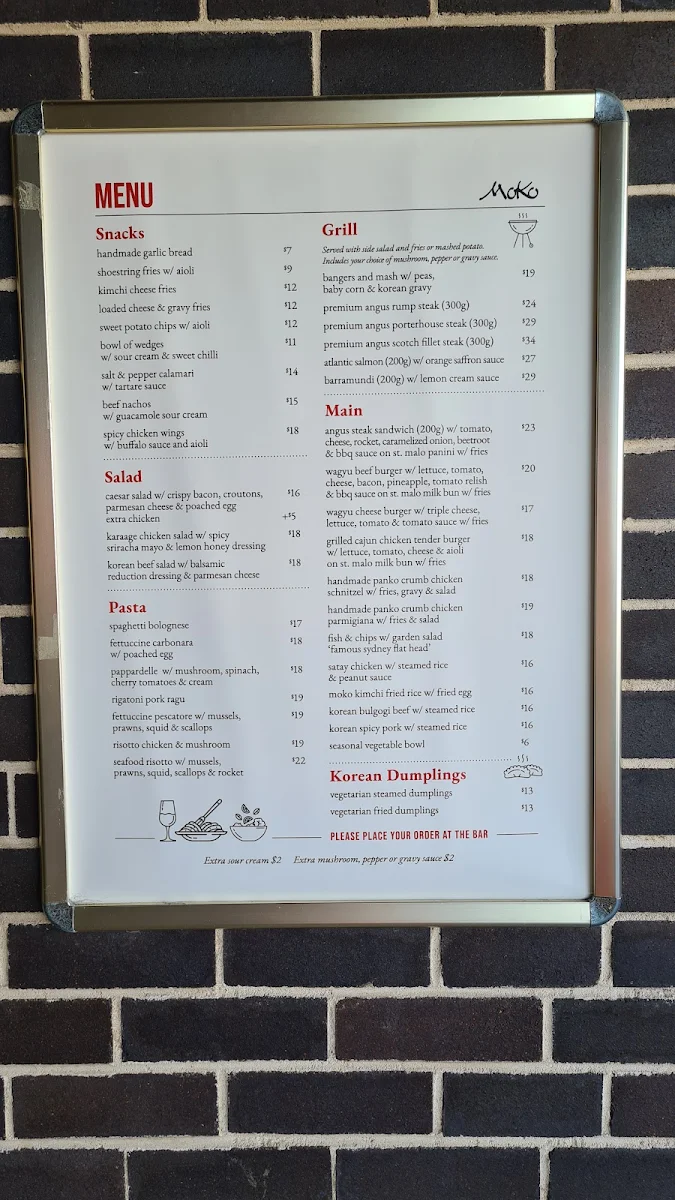 MENU
MoKo
Snacks
handmade garlic bread $7
shoestring fries w/ aioli $9
kimchi cheese fries $12
loaded cheese & gravy fries $12
sweet potato chips w/ aioli $12
bowl of wedges $11
w/ sour cream & sweet chilli
salt & pepper calamari $14
w/ tartare sauce
beef nachos $15
w/ guacamole sour cream
spicy chicken wings $18
w/ buffalo sauce and aioli
Salad
caesar salad w/ crispy bacon, croutons, $16
parmesan cheese & poached egg
extra chicken +$5
karaage chicken salad w/ spicy $18
sriracha mayo & lemon honey dressing
korean beef salad w/ balsamic $18
reduction dressing & parmesan cheese
Pasta
spaghetti bolognese $17
fettuccine carbonara $18
w/ poached egg
pappardelle w/ mushroom, spinach, $18
cherry tomatoes & cream
rigatoni pork ragu $19
fettuccine pescatore w/ mussels, $19
prawns, squid & scallops
risotto chicken & mushroom $19
seafood risotto w/ mussels, $22
prawns, squid, scallops & rocket
Grill
Served with side salad and fries or mashed potato.
Includes your choice of mushroom, pepper or gravy sauce.
bangers and mash w/ peas, $19
baby corn & korean gravy
premium angus rump steak (300g) $24
premium angus porterhouse steak (300g) $29
premium angus scotch fillet steak (300g) $34
atlantic salmon (200g) w/ orange saffron sauce $27
barramundi (200g) w/ lemon cream sauce $29
Main
angus steak sandwich (200g) w/ tomato, $23
cheese, rocket, caramelized onion, beetroot
& bbq sauce on st. malo panini w/ fries
wagyu beef burger w/ lettuce, tomato, $20
cheese, bacon, pineapple, tomato relish
& bbq sauce on st. malo milk bun w/ fries
wagyu cheese burger w/ triple cheese, $17
lettuce, tomato & tomato sauce w/ fries
grilled cajun chicken tender burger $18
w/ lettuce, tomato, cheese & aioli
on st. malo milk bun w/ fries
handmade panko crumb chicken $18
schnitzel w/ fries, gravy & salad
handmade panko crumb chicken $19
parmigiana w/ fries & salad
fish & chips w/ garden salad $18
'famous sydney flat head'
satay chicken w/ steamed rice $16
& peanut sauce
moko kimchi fried rice w/ fried egg $16
korean bulgogi beef w/ steamed rice $16
korean spicy pork w/ steamed rice $16
seasonal vegetable bowl $6
Korean Dumplings
vegetarian steamed dumplings $13
vegetarian fried dumplings $13
PLEASE PLACE YOUR ORDER AT THE BAR
Extra sour cream $2 Extra mushroom, pepper or gravy sauce $2